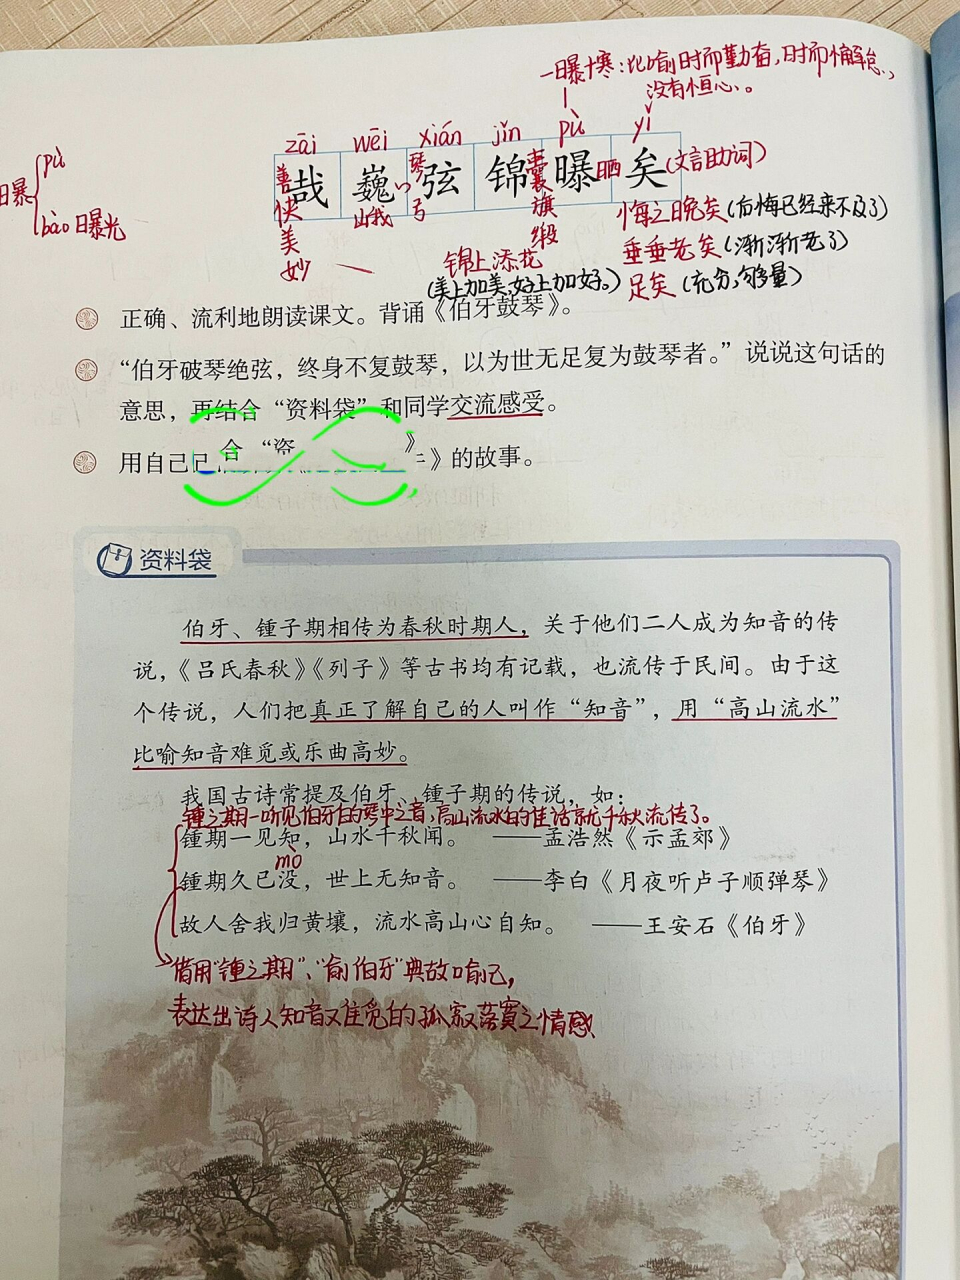 一曝十寒：比喻时而勤奋，时而懈怠，
没有恒心。
zāi wēi xián jǐn pù yǐ
哉 巍 弦 锦 曝 矣
善哉 快哉 美哉 妙哉
山 我
琴 弓
囊 旗 缎
晒
(文言助词)
日曝
pù
bào 曝光
悔之晚矣(后悔已经来不及了)
垂垂老矣(渐渐老了)
足矣(充分,够量)
锦上添花
(美上加美,好上加好。)
正确、流利地朗读课文。背诵《伯牙鼓琴》。
“伯牙破琴绝弦，终身不复鼓琴，以为世无足复为鼓琴者。”说说这句话的
意思，再结合“资料袋”和同学交流感受。
用自己 》的故事。
合“资 》
资料袋
伯牙、锺子期相传为春秋时期人，关于他们二人成为知音的传
说，《吕氏春秋》《列子》等古书均有记载，也流传于民间。由于这
个传说，人们把真正了解自己的人叫作“知音”，用“高山流水”
比喻知音难觅或乐曲高妙。
我国古诗常提及伯牙、锺子期的传说，如：
锺子期一听见伯牙的琴中之音,高山流水的佳话就千秋流传了。
锺期一见知，山水千秋闻。 ——孟浩然《示孟郊》
mò
锺期久已没，世上无知音。 ——李白《月夜听卢子顺弹琴》
故人舍我归黄壤，流水高山心自知。 ——王安石《伯牙》
借用“锺子期”、“俞伯牙”典故喻己,
表达出诗人知音难觅的孤寂落寞之情感